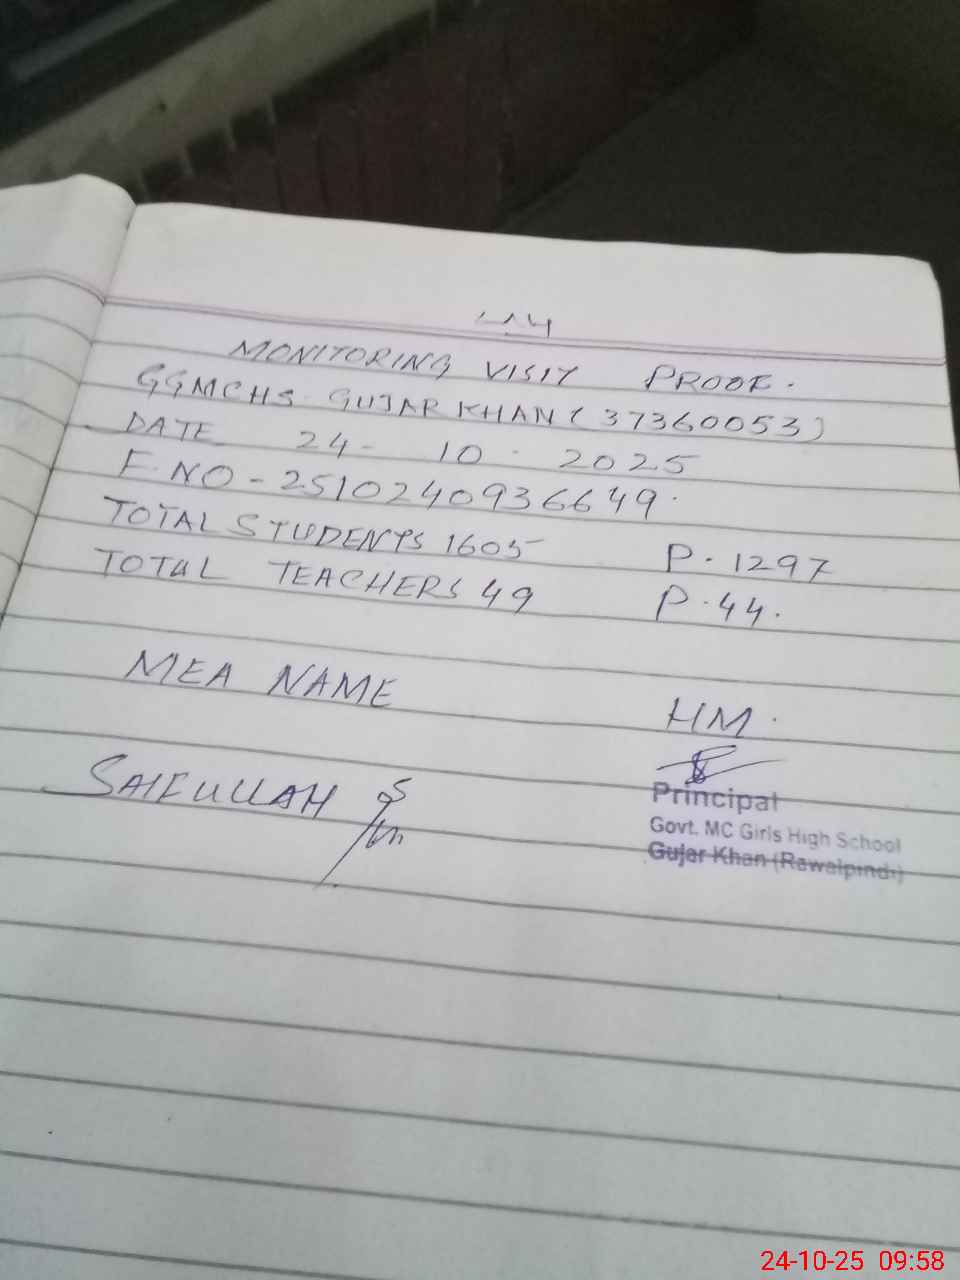 MONITORING VISIT PROOF.
GGMCHS GUJAR KHAN (37360053)
DATE 24-10-2025
F.NO - 2510240936649.
TOTAL STUDENTS 1605 P.1297
TOTAL TEACHERS 49 P.44.
MEA NAME HM.
SAIFULLAH
Principal
Govt. MC Girls High School
Gujar Khan (Rawalpindi)
24-10-25 09:58